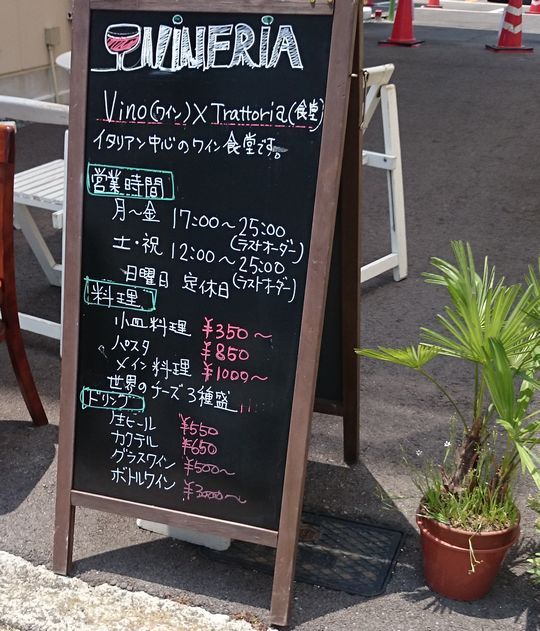 VINERIA
Vino(ワイン)×Trattoria(食堂)
イタリアン中心のワイン食堂です。
営業時間
月〜金 17:00〜25:00
(ラストオーダー)
土・祝 12:00〜25:00
(ラストオーダー)
日曜日 定休日
料理
小皿料理 ¥350〜
パスタ ¥850
メイン料理 ¥1000〜
世界のチーズ3種盛
ドリンク
生ビール ¥550
カクテル ¥650
グラスワイン ¥500〜
ボトルワイン ¥3000〜